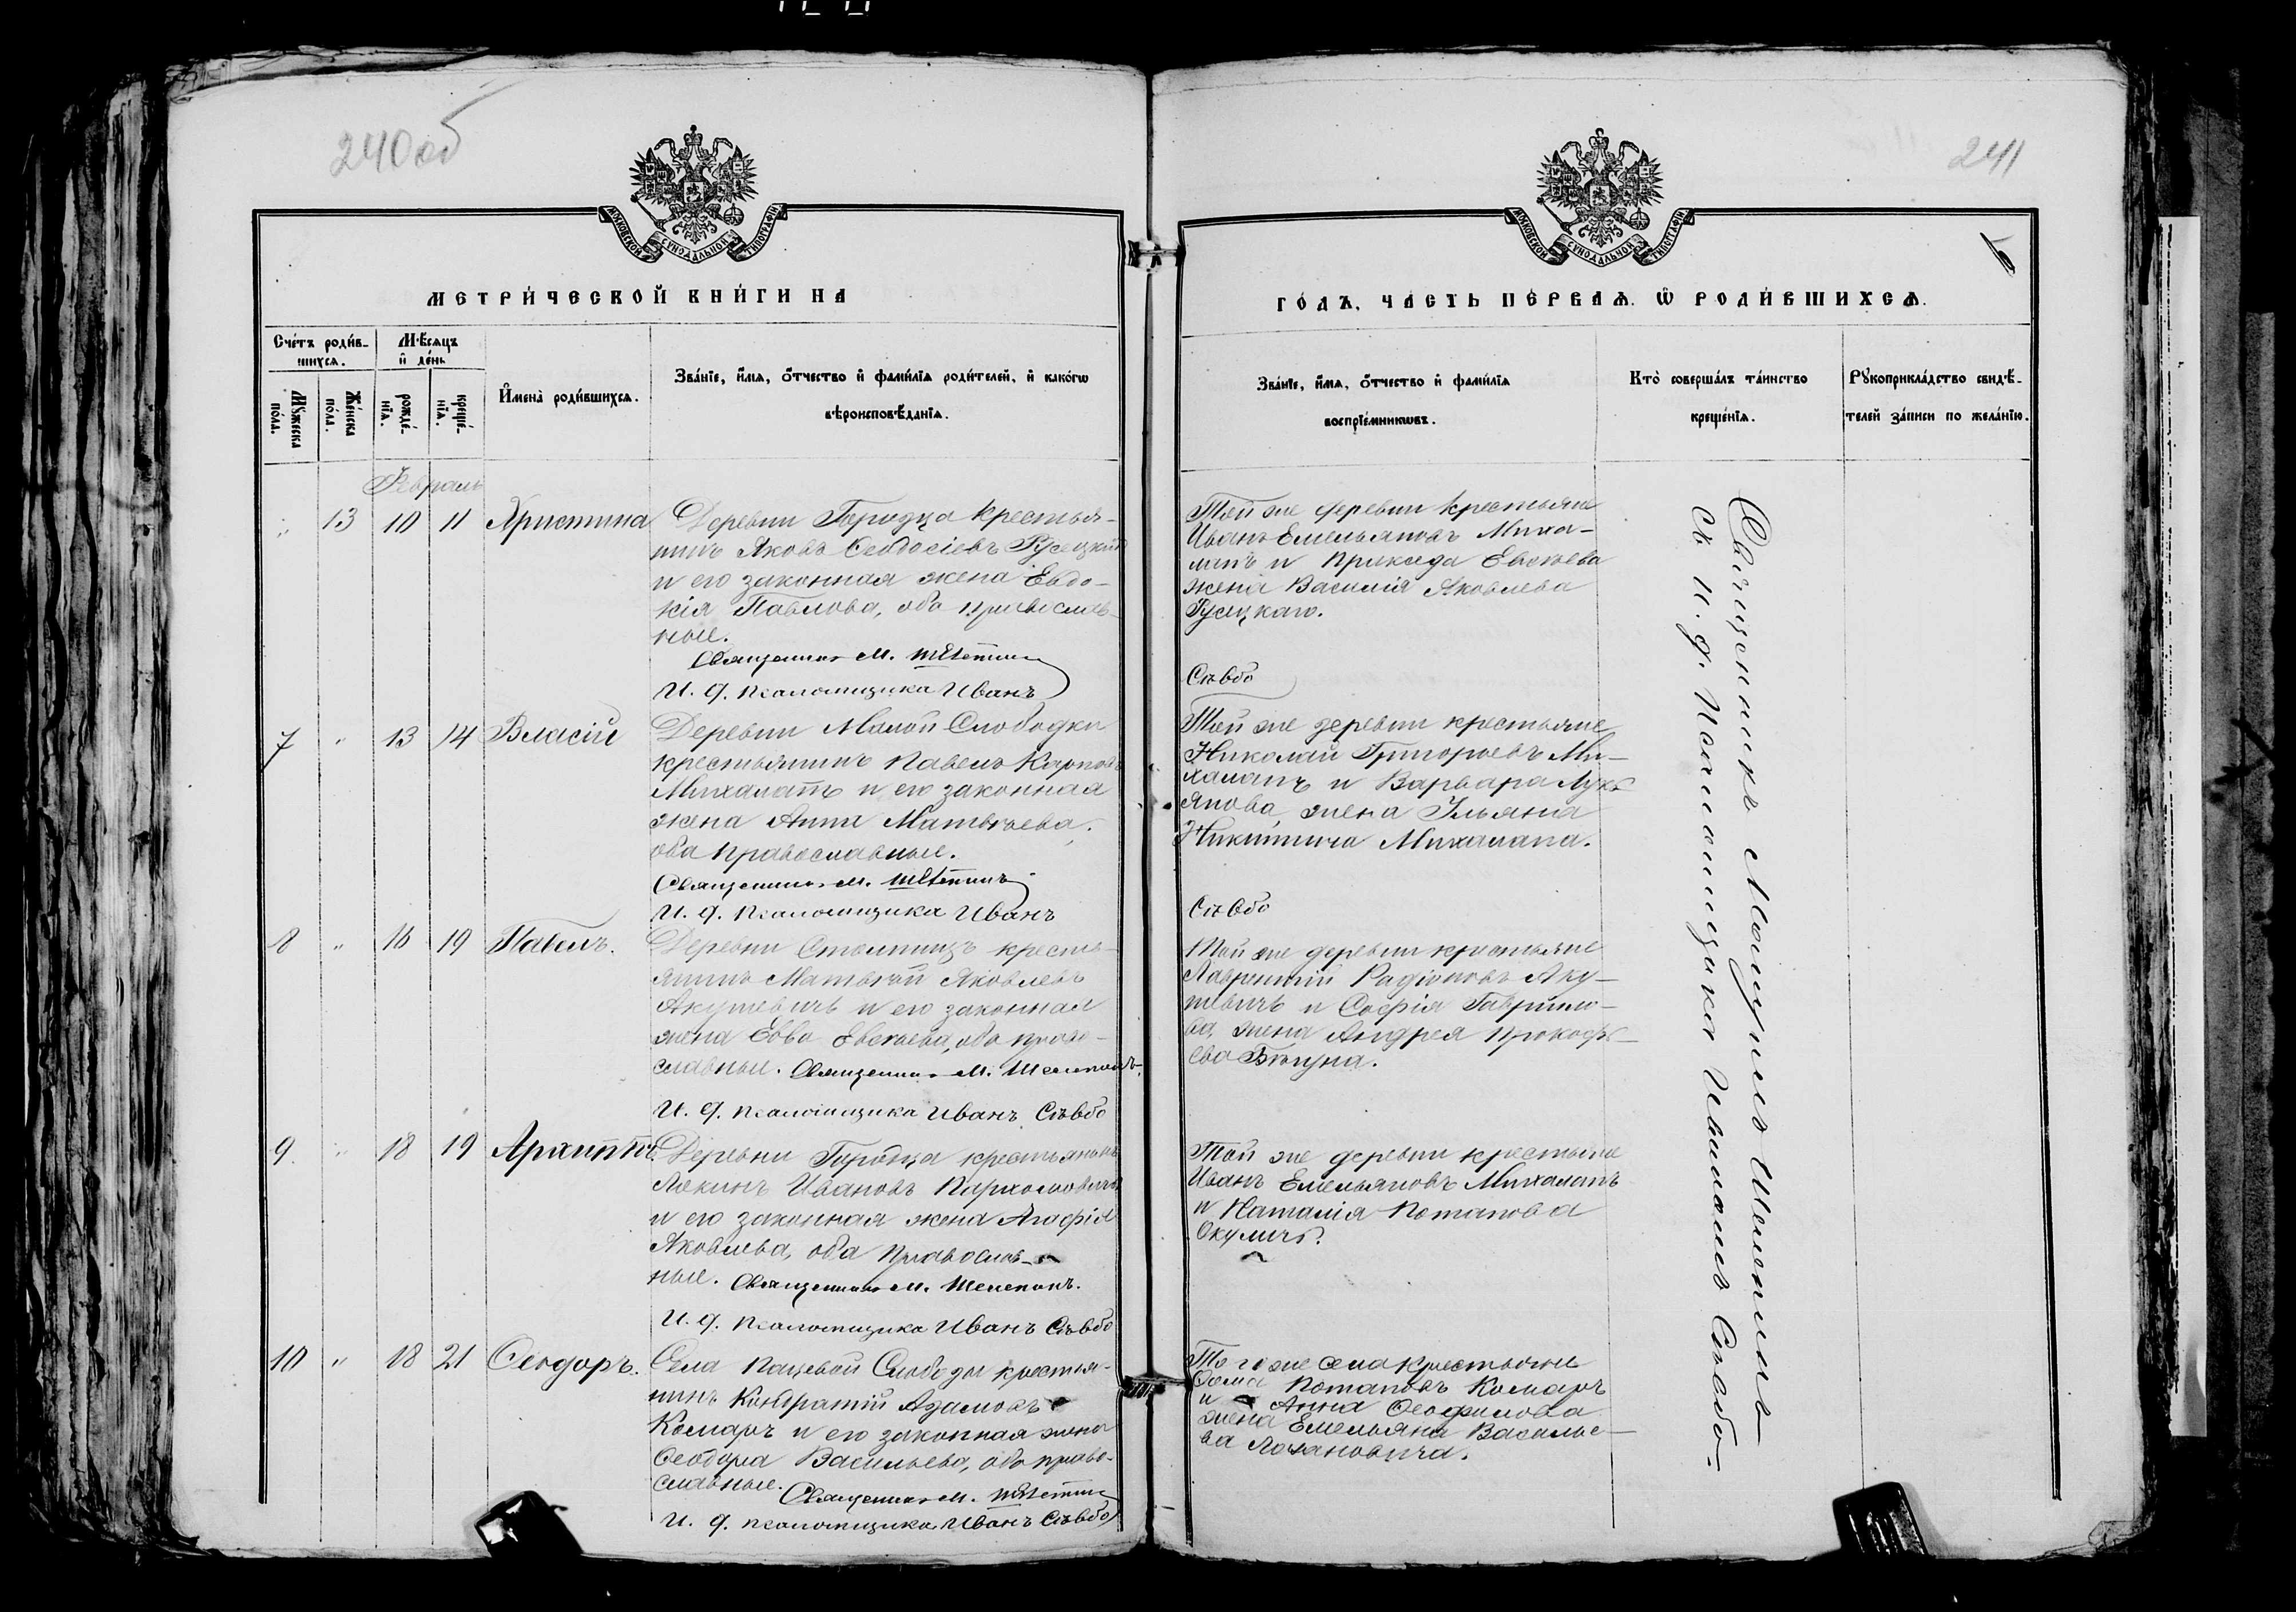 240 об
241
МОСКОВСКОЙ СѴНОДАЛЬНОЙ ТИПОГРАФІИ
МОСКОВСКОЙ СѴНОДАЛЬНОЙ ТИПОГРАФІИ
МЕТРИ́ЧЕСКОЙ КНИ́ГИ НА
ГО́ДЪ, ЧА́СТЬ ПЕ́РВАѦ. Ѽ РОДИ́ВШИХСѦ.
Сче́тъ роди́в-
шихсѧ.
Мѣ́сяцъ
и҆ де́нь
Мꙋ́жеска по́ла.
Же́нска по́ла.
рожде́-нїѧ.
креще́-нїѧ.
И҆мена̀ роди́вшихсѧ.
Зва́нїе, и҆́мѧ, ѻ҆́тчество и҆ фами́лїѧ роди́телей, и҆ како́гѡ
вѣроисповѣ́данїѧ.
Зва́нїе, и҆́мѧ, ѻ҆́тчество и҆ фами́лїѧ
воспрїе́мникѡвъ.
Кто̀ соверша́лъ та́инство
креще́нїѧ.
Рꙋкоприкла́дство свидѣ́-
телей за́писи по жела́нїю.
Февраль
„ 13 10 11 Христина
Деревни Городца крестья-
нинъ Яковъ Ѳеодосіевъ Русецкій
и его законная жена Евдо-
кія Павлова, оба православ-
ные.
Священникъ М. Шелепинъ
И. д. псаломщика Иванъ
Той же деревни крестьяне
Иванъ Емельяновъ Миха-
лапъ и Прикседа Евсѣева
жена Василія Яковлева
Русецкаго.
Сѣвбо
7 „ 13 14 Власій
Деревни Малой Слободки
крестьянинъ Павелъ Карповъ
Михалапъ и его законная
жена Анна Матвѣева,
оба православные.
Священникъ М. Шелепинъ
И. д. псаломщика Иванъ
Той же деревни крестьяне
Николай Григорьевъ Ми-
халапъ и Варвара Лукь
янова, жена Ульяна
Никитича Михалапа.
Сѣвбо
8 „ 16 19 Павелъ.
Деревни Столпищъ кресть-
янинъ Матвѣй Яковлевъ
Акушевичъ и его законная
жена Евва Евсѣева, оба право-
славные. Священникъ М. Шелепинъ.
И. д. псаломщика Иванъ Сѣвбо
Той же деревни крестьяне
Лаврентій Радіоновъ Аку-
шевичъ и Софія Гаврило-
ва, жена Андрея Прокофь-
ева Бѣгуна.
9. „ 18 19 Архиппъ.
Деревни Городца крестьянинъ
Лукинъ Ивановъ Пархомовичъ
и его законная жена Агафія
Яковлева, оба православ-
ные. Священникъ М. Шелепинъ.
И. д. псаломщика Иванъ Сѣвбо
Той же деревни крестьяне
Иванъ Емельяновъ Михалапъ
и Наталія Потапова
Окуличъ.
10 „ 18 21 Ѳеодоръ.
Села Пацевой Слободы крестья-
нинъ Кондратій Адамовъ
Комаръ и его законная жена
Ѳеодора Васильева, оба право-
славные. Священникъ М. Шелепинъ
И. д. псаломщика Иванъ Сѣвбо
Того же села крестьяне
Ѳома Потаповъ Комаръ
и Анна Ѳеофилова
жена Емельяна Василье-
ва Лохановича.
Священникъ Шелепинъ
съ И. д. Псаломщика Иваномъ Сѣвбо.